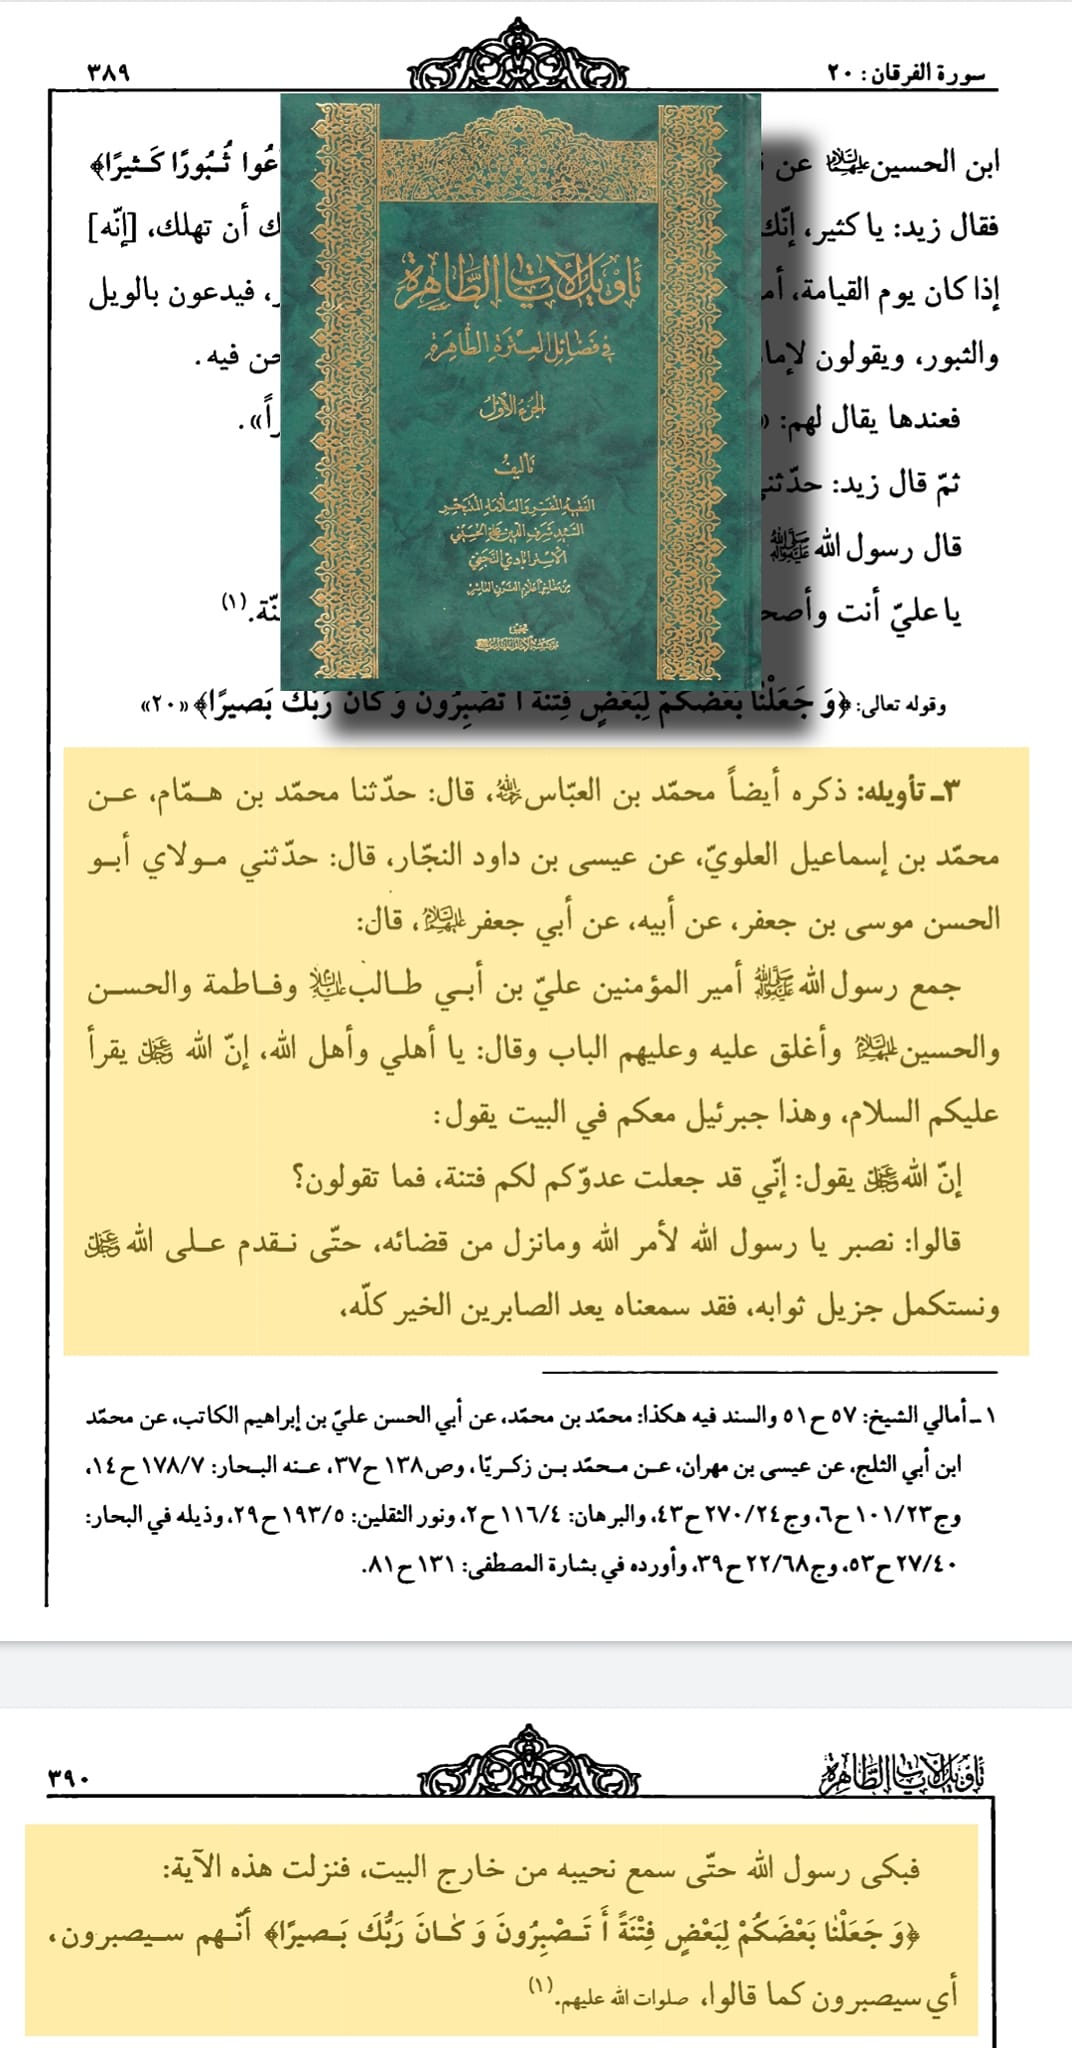 سورة الفرقان : ٢٠
٣٨٩
ابن الحسين عليهما السلام عن
عُوا ثُبُورًا كَثيرًا﴾
فقال زيد: يا كثير، إنّك
ك أن تهلك، [إنّه]
إذا كان يوم القيامة،
، فيدعون بالويل
والثبور، ويقولون
حن فيه.
فعندها يقال لهم: «
راً».
ثمّ قال زيد:
قال رسول الله ﷺ
يا عليّ أنت
نّة.(١)
تأويل الآيات الطاهرة
في فضائل العترة الطاهرة
الجزء الأول
تأليف
الفقيه المفسر والعلامة المتبحر
السيد شرف الدين علي الحسيني
الأسترابادي النجفي
من مفاخر أعلام القرن العاشر
تحقيق
وقوله تعالى: ﴿وَ جَعَلْنٰا بَعْضَكُمْ لِبَعْضٍ فِتْنَةً أَ تَصْبِرُونَ وَ كٰانَ رَبُّكَ بَصيرًا﴾ «٢٠»
٣ـ تأويله: ذكره أيضاً محمّد بن العبّاس رحمه الله، قال: حدّثنا محمّد بن همّام، عن
محمّد بن إسماعيل العلويّ، عن عيسى بن داود النجّار، قال: حدّثني مولاي أبو
الحسن موسى بن جعفر، عن أبيه، عن أبي جعفر عليهم السلام، قال:
جمع رسول الله ﷺ أمير المؤمنين عليّ بن أبي طالب عليه السلام وفاطمة والحسن
والحسين عليهم السلام وأغلق عليه وعليهم الباب وقال: يا أهلي وأهل الله، إنّ الله عزّ وجلّ يقرأ
عليكم السلام، وهذا جبرئيل معكم في البيت يقول:
إنّ الله عزّ وجلّ يقول: إنّي قد جعلت عدوّكم لكم فتنة، فما تقولون؟
قالوا: نصبر يا رسول الله لأمر الله ومانزل من قضائه، حتّى نقدم على الله عزّ وجلّ
ونستكمل جزيل ثوابه، فقد سمعناه يعد الصابرين الخير كلّه،
١ ـ أمالي الشيخ: ٥٧ ح٥١ والسند فيه هكذا: محمّد بن محمّد، عن أبي الحسن عليّ بن إبراهيم الكاتب، عن محمّد
ابن أبي الثلج، عن عيسى بن مهران، عن محمّد بن زكريّا، وص١٣٨ ح٣٧، عنه البحار: ١٧٨/٧ ح١٤،
وج١٠١/٢٣ ح٦، وج٢٧٠/٢٤ ح٤٣، والبرهان: ١١٦/٤ ح٢، ونور الثقلين: ١٩٣/٥ ح٢٩، وذيله في البحار:
٢٧/٤٠ ح٥٣، وج٢٢/٦٨ ح٣٩، وأورده في بشارة المصطفى: ١٣١ ح٨١.
تأويل الآيات الطاهرة
٣٩٠
فبكى رسول الله حتّى سمع نحيبه من خارج البيت، فنزلت هذه الآية:
﴿وَ جَعَلْنٰا بَعْضَكُمْ لِبَعْضٍ فِتْنَةً أَ تَصْبِرُونَ وَ كٰانَ رَبُّكَ بَصيرًا﴾ أنّهم سيصبرون،
أي سيصبرون كما قالوا، صلوات الله عليهم.(١)